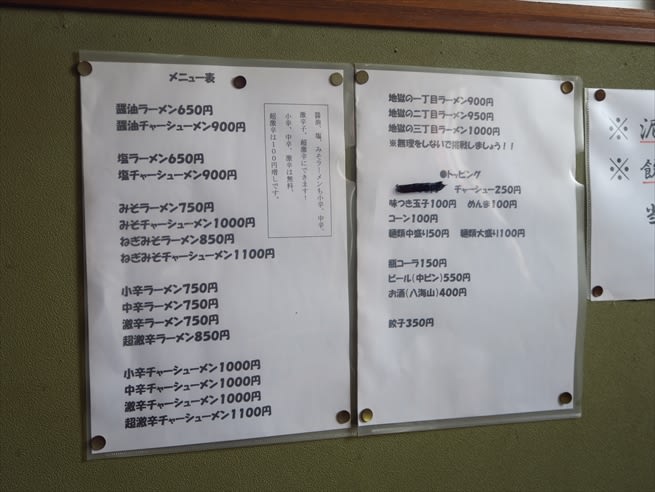 メニュー表
醤油ラーメン650円
醤油チャーシューメン900円
塩ラーメン650円
塩チャーシューメン900円
みそラーメン750円
みそチャーシューメン1000円
ねぎみそラーメン850円
ねぎみそチャーシューメン1100円
小辛ラーメン750円
中辛ラーメン750円
激辛ラーメン750円
超激辛ラーメン850円
小辛チャーシューメン1000円
中辛チャーシューメン1000円
激辛チャーシューメン1000円
超激辛チャーシューメン1100円
醤油、塩、みそラーメンも小辛、中辛、
激辛子、超激辛にできます!
小辛、中辛、激辛は無料、
超激辛は100円増しです。
地獄の一丁目ラーメン900円
地獄の二丁目ラーメン950円
地獄の三丁目ラーメン1000円
※無理をしないで挑戦しましょう!!
●トッピング
チャーシュー250円
味つき玉子100円 めんま100円
コーン100円
麺類中盛り50円 麺類大盛り100円
瓶コーラ150円
ビール(中ビン)550円
お酒(八海山)400円
餃子350円
※ 泥
※ 飲
当